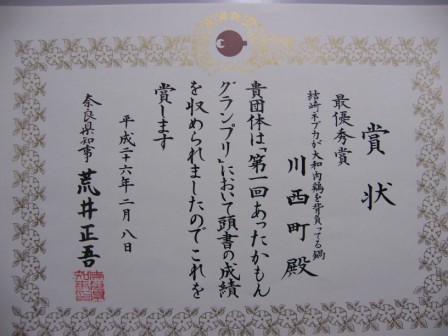 賞状
最優秀賞
結崎ネブカが大和肉鶏を背負ってる鍋
川西町殿
貴団体は「第一回あったかもん
グランプリ」において頭書の成績
を収められましたのでこれを
賞します
平成二十六年二月八日
奈良県知事 荒井正吾